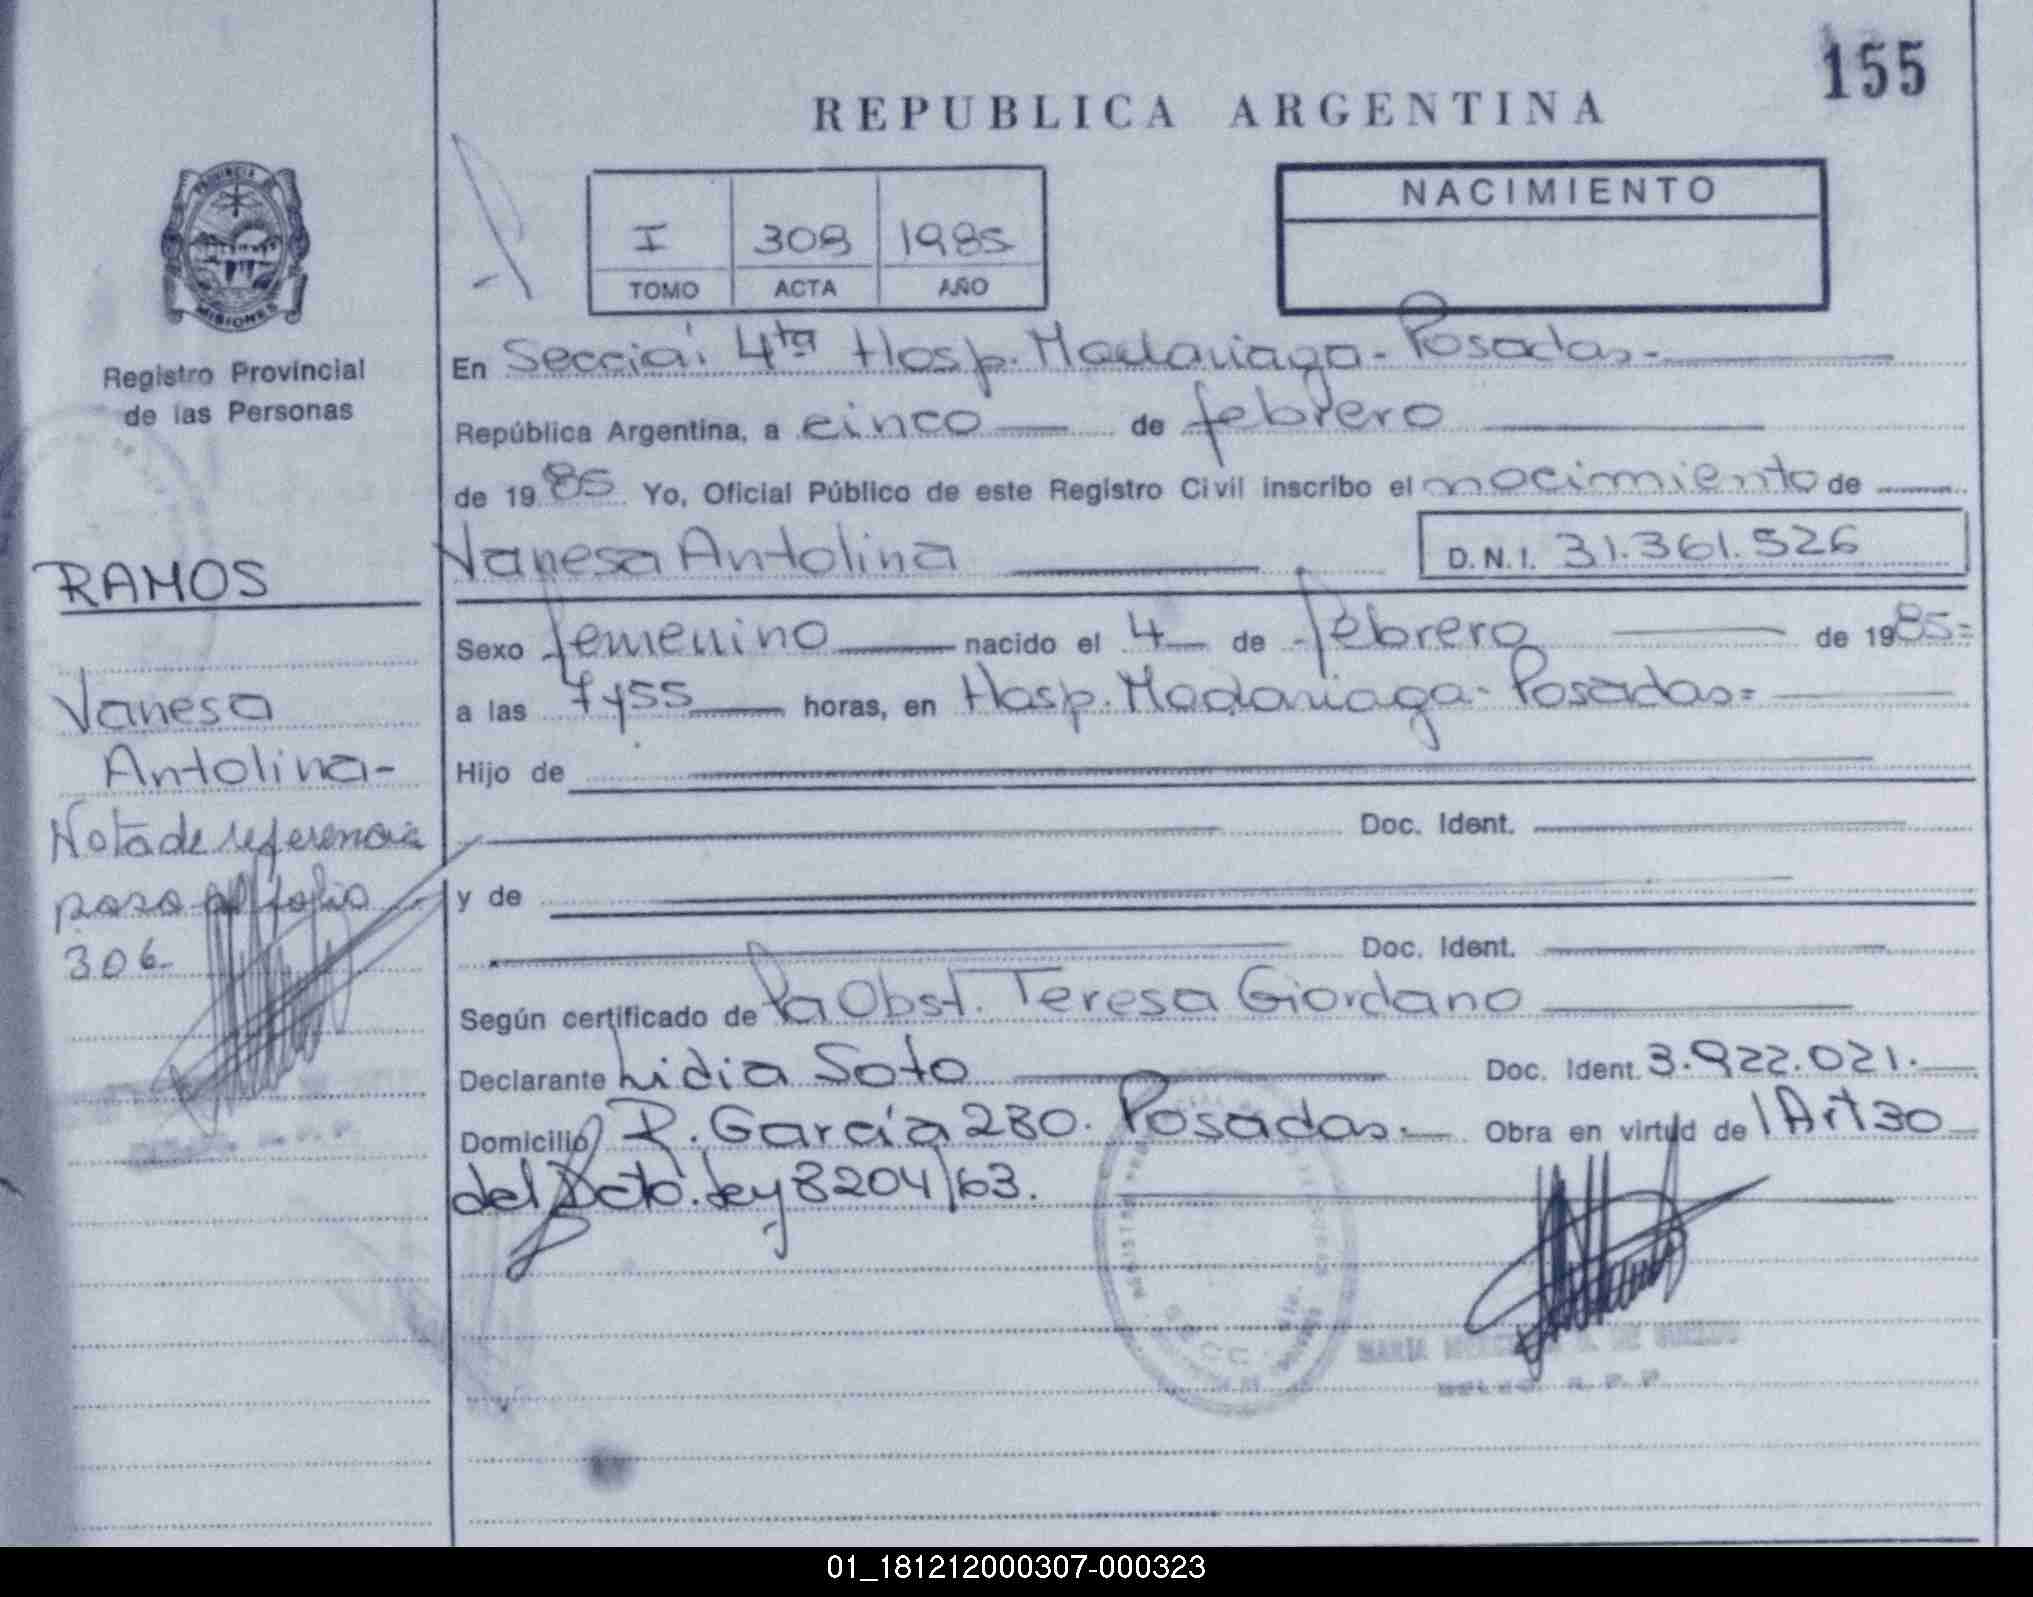 155
REPUBLICA ARGENTINA
I 308 1985
TOMO ACTA AÑO
NACIMIENTO
PROVINCIA DE
MISIONES
Registro Provincial
de las Personas
En Secció: 4ta Hosp. Madariaga - Posadas -
República Argentina, a cinco de febrero
de 1985 Yo, Oficial Público de este Registro Civil inscribo el nacimiento de
Vanesa Antolina D.N.I. 31.361.526
RAMOS
Vanesa
Antolina-
Nota de referencia
pasa al folio
306-
Sexo femenino nacido el 4 de febrero de 1985=
a las 7 y 55 horas, en Hosp. Madariaga - Posadas=
Hijo de
Doc. Ident.
y de
Doc. Ident.
Según certificado de la Obst. Teresa Giordano
Declarante Lidia Soto Doc. Ident. 3.922.021.
Domicilio R. García 280. Posadas. Obra en virtud del Art 30
del Dcto. Ley 8204/63.
MARIA DE
R. P. P.
01_181212000307-000323